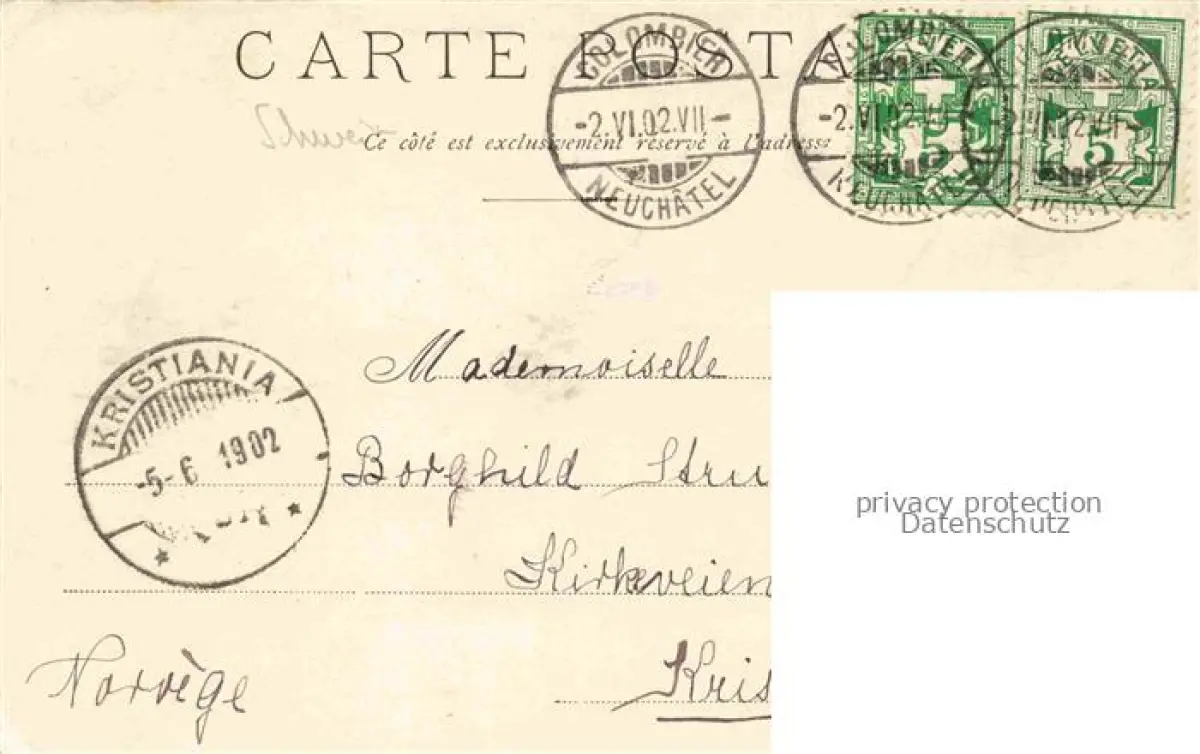 CARTE POSTA
Ce côté est exclusivement réservé à l'adresse
COLOMBIER
-2.VI.02.VII-
NEUCHÂTEL
COLOMBIER
-2.VI.02.VII-
NEUCHÂTEL
5
5
KRISTIANIA
-5-6 1902
Mademoiselle
Borghild Stru
Kirkeveien
Norvège
Kris
privacy protection
Datenschutz